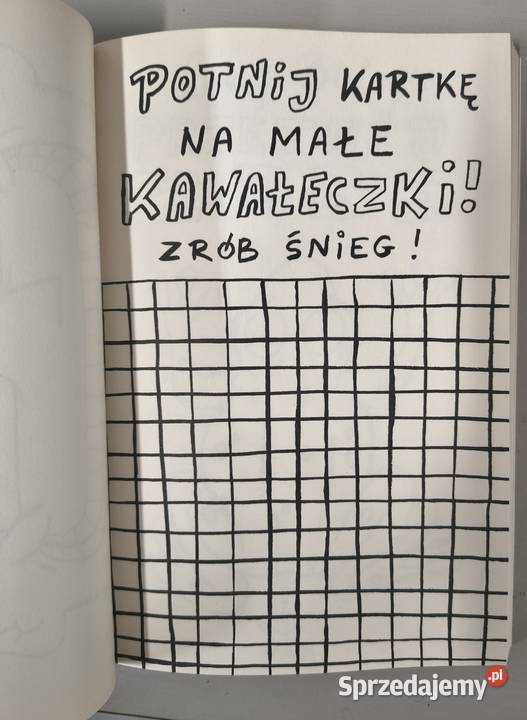 POTNIJ KARTKĘ
NA MAŁE
KAWAŁECZKI!
ZRÓB ŚNIEG!
Sprzedajemy.pl